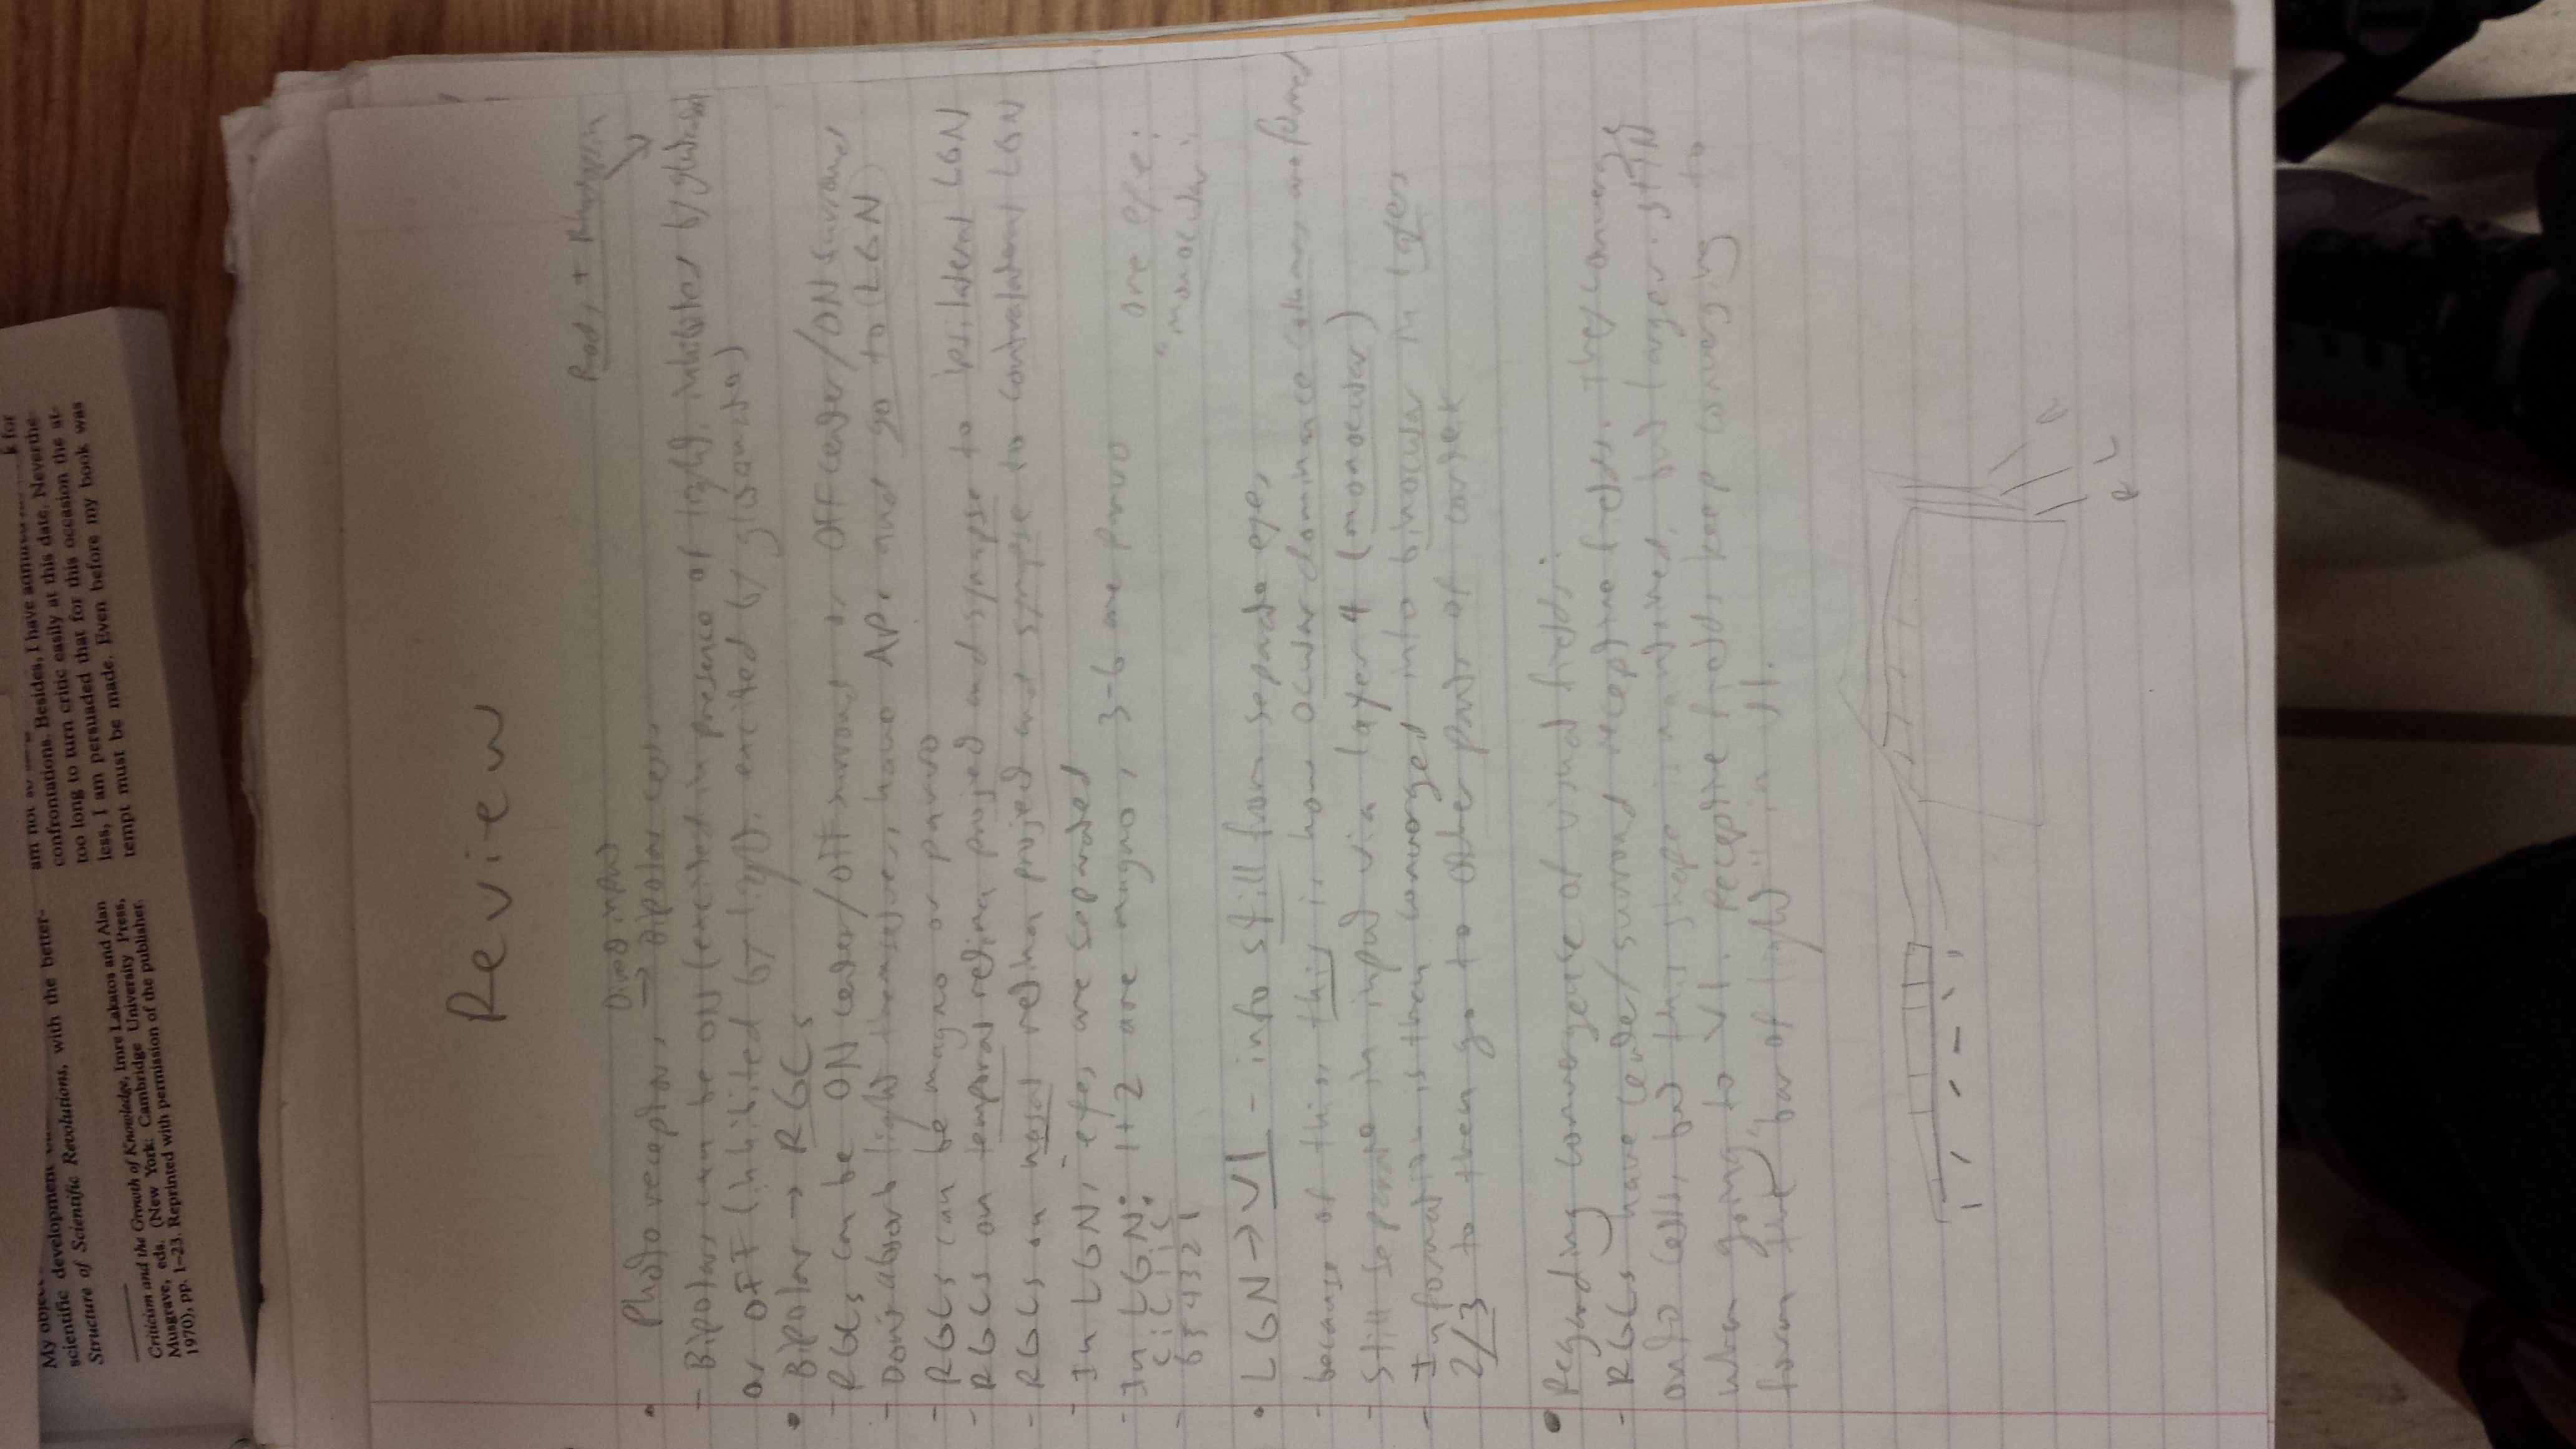 am not as
k for
confrontations. Besides, I have
too long to turn critic easily at this date. Neverthe-
less, I am persuaded that for this occasion the at-
tempt must be made. Even before my book was
My
scientific development
with the better-
Structure of Scientific Revolutions,
Criticism and the Growth of Knowledge, Imre Lakatos and Alan
Musgrave, eds. (New York: Cambridge University Press,
1970), pp. 1–23. Reprinted with permission of the publisher.
Review
Rods + Rhodopsin
Direct input
• Photoreceptors → Bipolar cells
- Bipolars can be ON (excited in presence of light, inhibited by glutamate)
or OFF (inhibited by light, excited by glutamate)
• Bipolar → RGCs
- RGCs can be ON center/off surround or OFF center/ON surround
- Don't absorb light themselves, have APs and go to (LGN)
- RGCs can be magno or parvo
- RGCs on temporal retina project and synapse to ipsilateral LGN
- RGCs on nasal retina project and synapse to contralateral LGN
- In LGN, eyes are separated
- In LGN: 1+2 are magno, 3-6 are parvo
C I C I I C
6 5 4 3 2 1
one eye:
"monocular"
• LGN → V1 - info still from separate eyes
- because of this, this is how ocular dominance columns are formed
- Still separate in input via layer 4 (monocular)
- Information is then converged into binocular in layers
2/3 to then go to other parts of cortex
• Regarding convergence of visual fields:
- RGCs have center/surround receptive fields. They converge
onto cells, but this shape is maintained, but larger. still
when going to V1. Receptive fields keep converging to
form the "bar of light" in V1.
R L